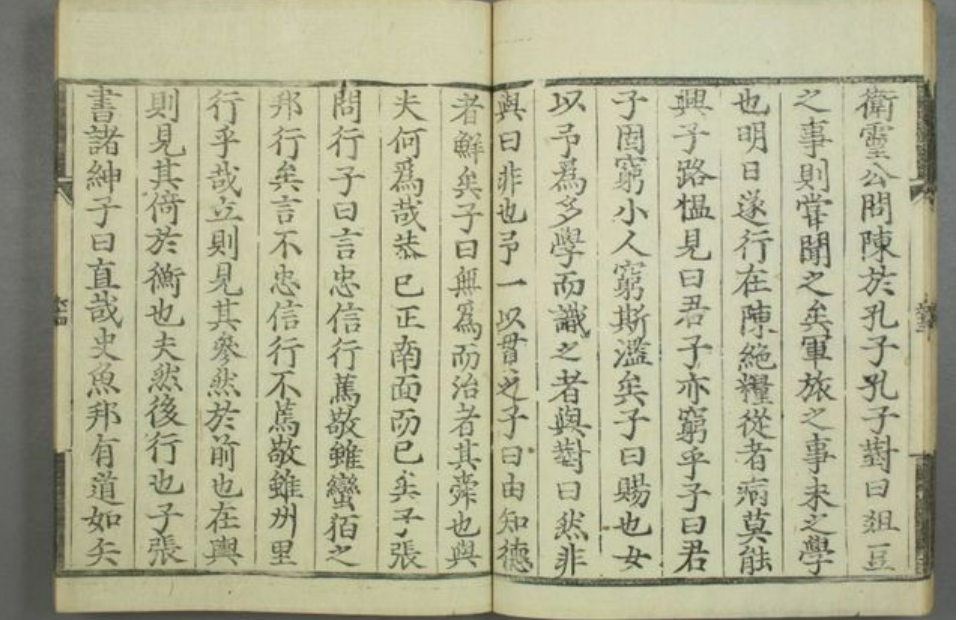 衛靈公問陳於孔子孔子對曰俎豆
之事則甞聞之矣軍旅之事未之學
也明日遂行在陳絶糧從者病莫能
興子路慍見曰君子亦窮乎子曰君
子固窮小人窮斯濫矣子曰賜也女
以予爲多學而識之者與對曰然非
與曰非也予一以貫之子曰由知德
者鮮矣子曰無爲而治者其舜也與
夫何爲哉恭己正南面而已矣子張
問行子曰言忠信行篤敬雖蠻貊之
邦行矣言不忠信行不篤敬雖州里
行乎哉立則見其參然於前也在輿
則見其倚於衡也夫然後行也子張
書諸紳子曰直哉史魚邦有道如矢